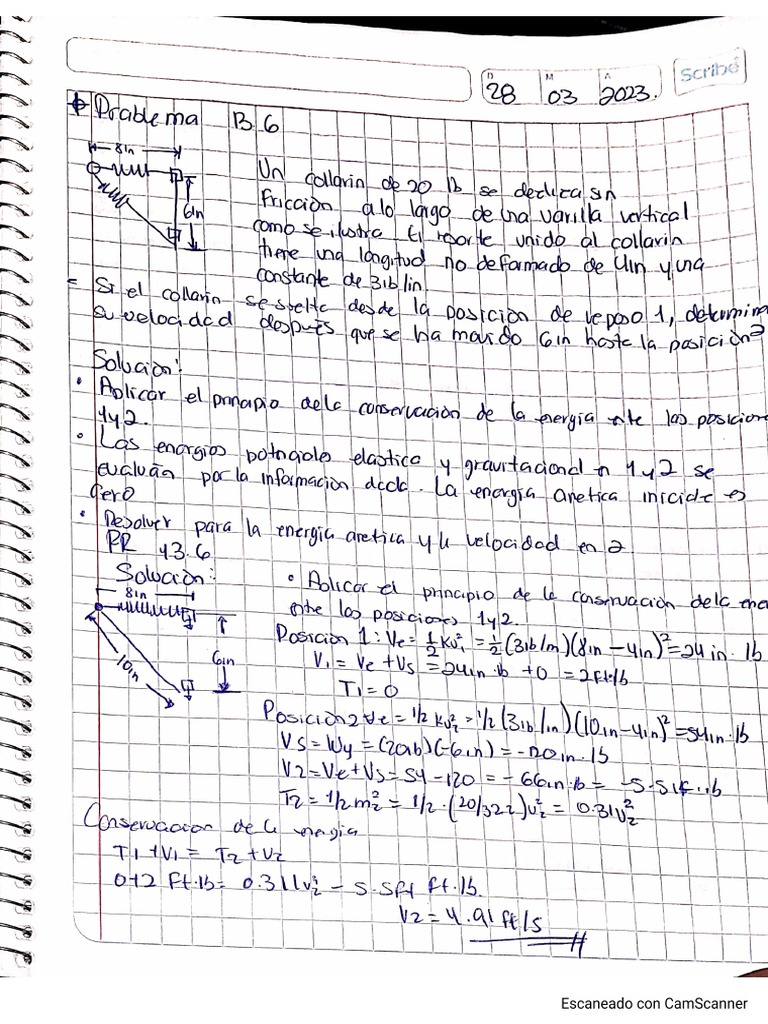 D M A
28 03 2023.
Scribe
Problema 13.6
8in
6in
Un collarin de 20 lb se desliza sin
fricción a lo largo de una varilla vertical
como se ilustra. El resorte unido al collarin
tiene una longitud no deformado de 4in y una
constante de 3 lb/in.
= Si el collarin se suelta desde la posición de reposo 1, determina
su velocidad después que se ha movido 6in hasta la posición 2
Solución:
• Aplicar el principio de la conservación de la energia ente las posicion
1 y 2.
• Las energias potenciales elastica y gravitacional en 1 y 2 se
evaluán por la información dada. La energia cinetica inicial es
cero
• Resolver para la energia cinetica y la velocidad en 2
PR 43.6
Solución:
• Aplicar el principio de la conservación de la ene
ente las posiciones 1 y 2.
8in
6in
10in
Posición 1: Ve = ½ kv²₁ = ½ (3 lb/in)(8in - 4in)² = 24 in · lb
V₁ = Ve + Vs = 24in·lb + 0 = 2ft·lb
T1 = 0
Posición 2 Ve = 1/2 kv²₂ = 1/2 (3 lb/in)(10in - 4in)² = 54in·lb
VS = Wy = (20lb)(-6in) = -120in·lb
V2 = Ve + Vs = 54 - 120 = -66in·lb = -5.5
T2 = 1/2 m²₂ = 1/2 · (20/32.2)v²₂ = 0.31v²₂
Conservación de la energia
T1 + V1 = T2 + V2
0+2 ft·lb = 0.311v²₂ - 5.5 ft·lb.
V2 = 4.91 ft/s
Escaneado con CamScanner